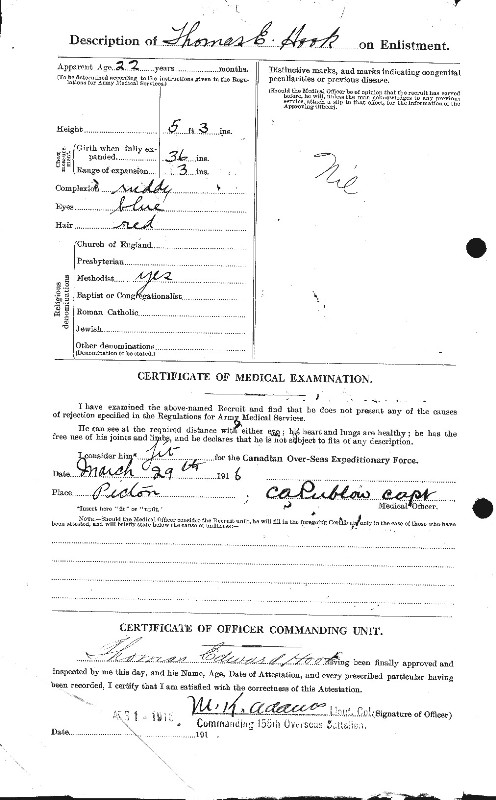 Description of Thomas E. Hook on Enlistment.
Apparent Age 22 years months.
(To be determined according to the instructions given in the Regulations for Army Medical Services.)
Height 5 ft 3 ins.
Chest measurement
Girth when fully expanded 36 ins.
Range of expansion 3 ins.
Complexion ruddy
Eyes blue
Hair red
Religious denominations
Church of England
Presbyterian
Methodist yes
Baptist or Congregationalist
Roman Catholic
Jewish
Other denominations
(Denomination to be stated.)
Distinctive marks, and marks indicating congenital
peculiarities or previous disease.
(Should the Medical Officer be of opinion that the recruit has served
before, he will, unless the man acknowledges to any previous
service, attach a slip to that effect, for the information of the
Approving Officer).
Nil
CERTIFICATE OF MEDICAL EXAMINATION.
I have examined the above-named Recruit and find that he does not present any of the causes
of rejection specified in the Regulations for Army Medical Services.
He can see at the required distance with either eye; his heart and lungs are healthy; he has the
free use of his joints and limbs, and he declares that he is not subject to fits of any description.
I consider him* fit for the Canadian Over-Seas Expeditionary Force.
Date March 29th 1916
Place Picton C A Publow Capt
Medical Officer.
*Insert here "fit" or "unfit."
NOTE.—Should the Medical Officer consider the Recruit unfit, he will fill in the foregoing Certificate only in the case of those who have
been attested, and will briefly state below the cause of unfitness:—
CERTIFICATE OF OFFICER COMMANDING UNIT.
Thomas Edward Hook having been finally approved and
inspected by me this day, and his Name, Age, Date of Attestation, and every prescribed particular having
been recorded, I certify that I am satisfied with the correctness of this Attestation.
M. K. Adams Lieut. Col. (Signature of Officer)
Commanding 155th Overseas Battalion.
Date 191